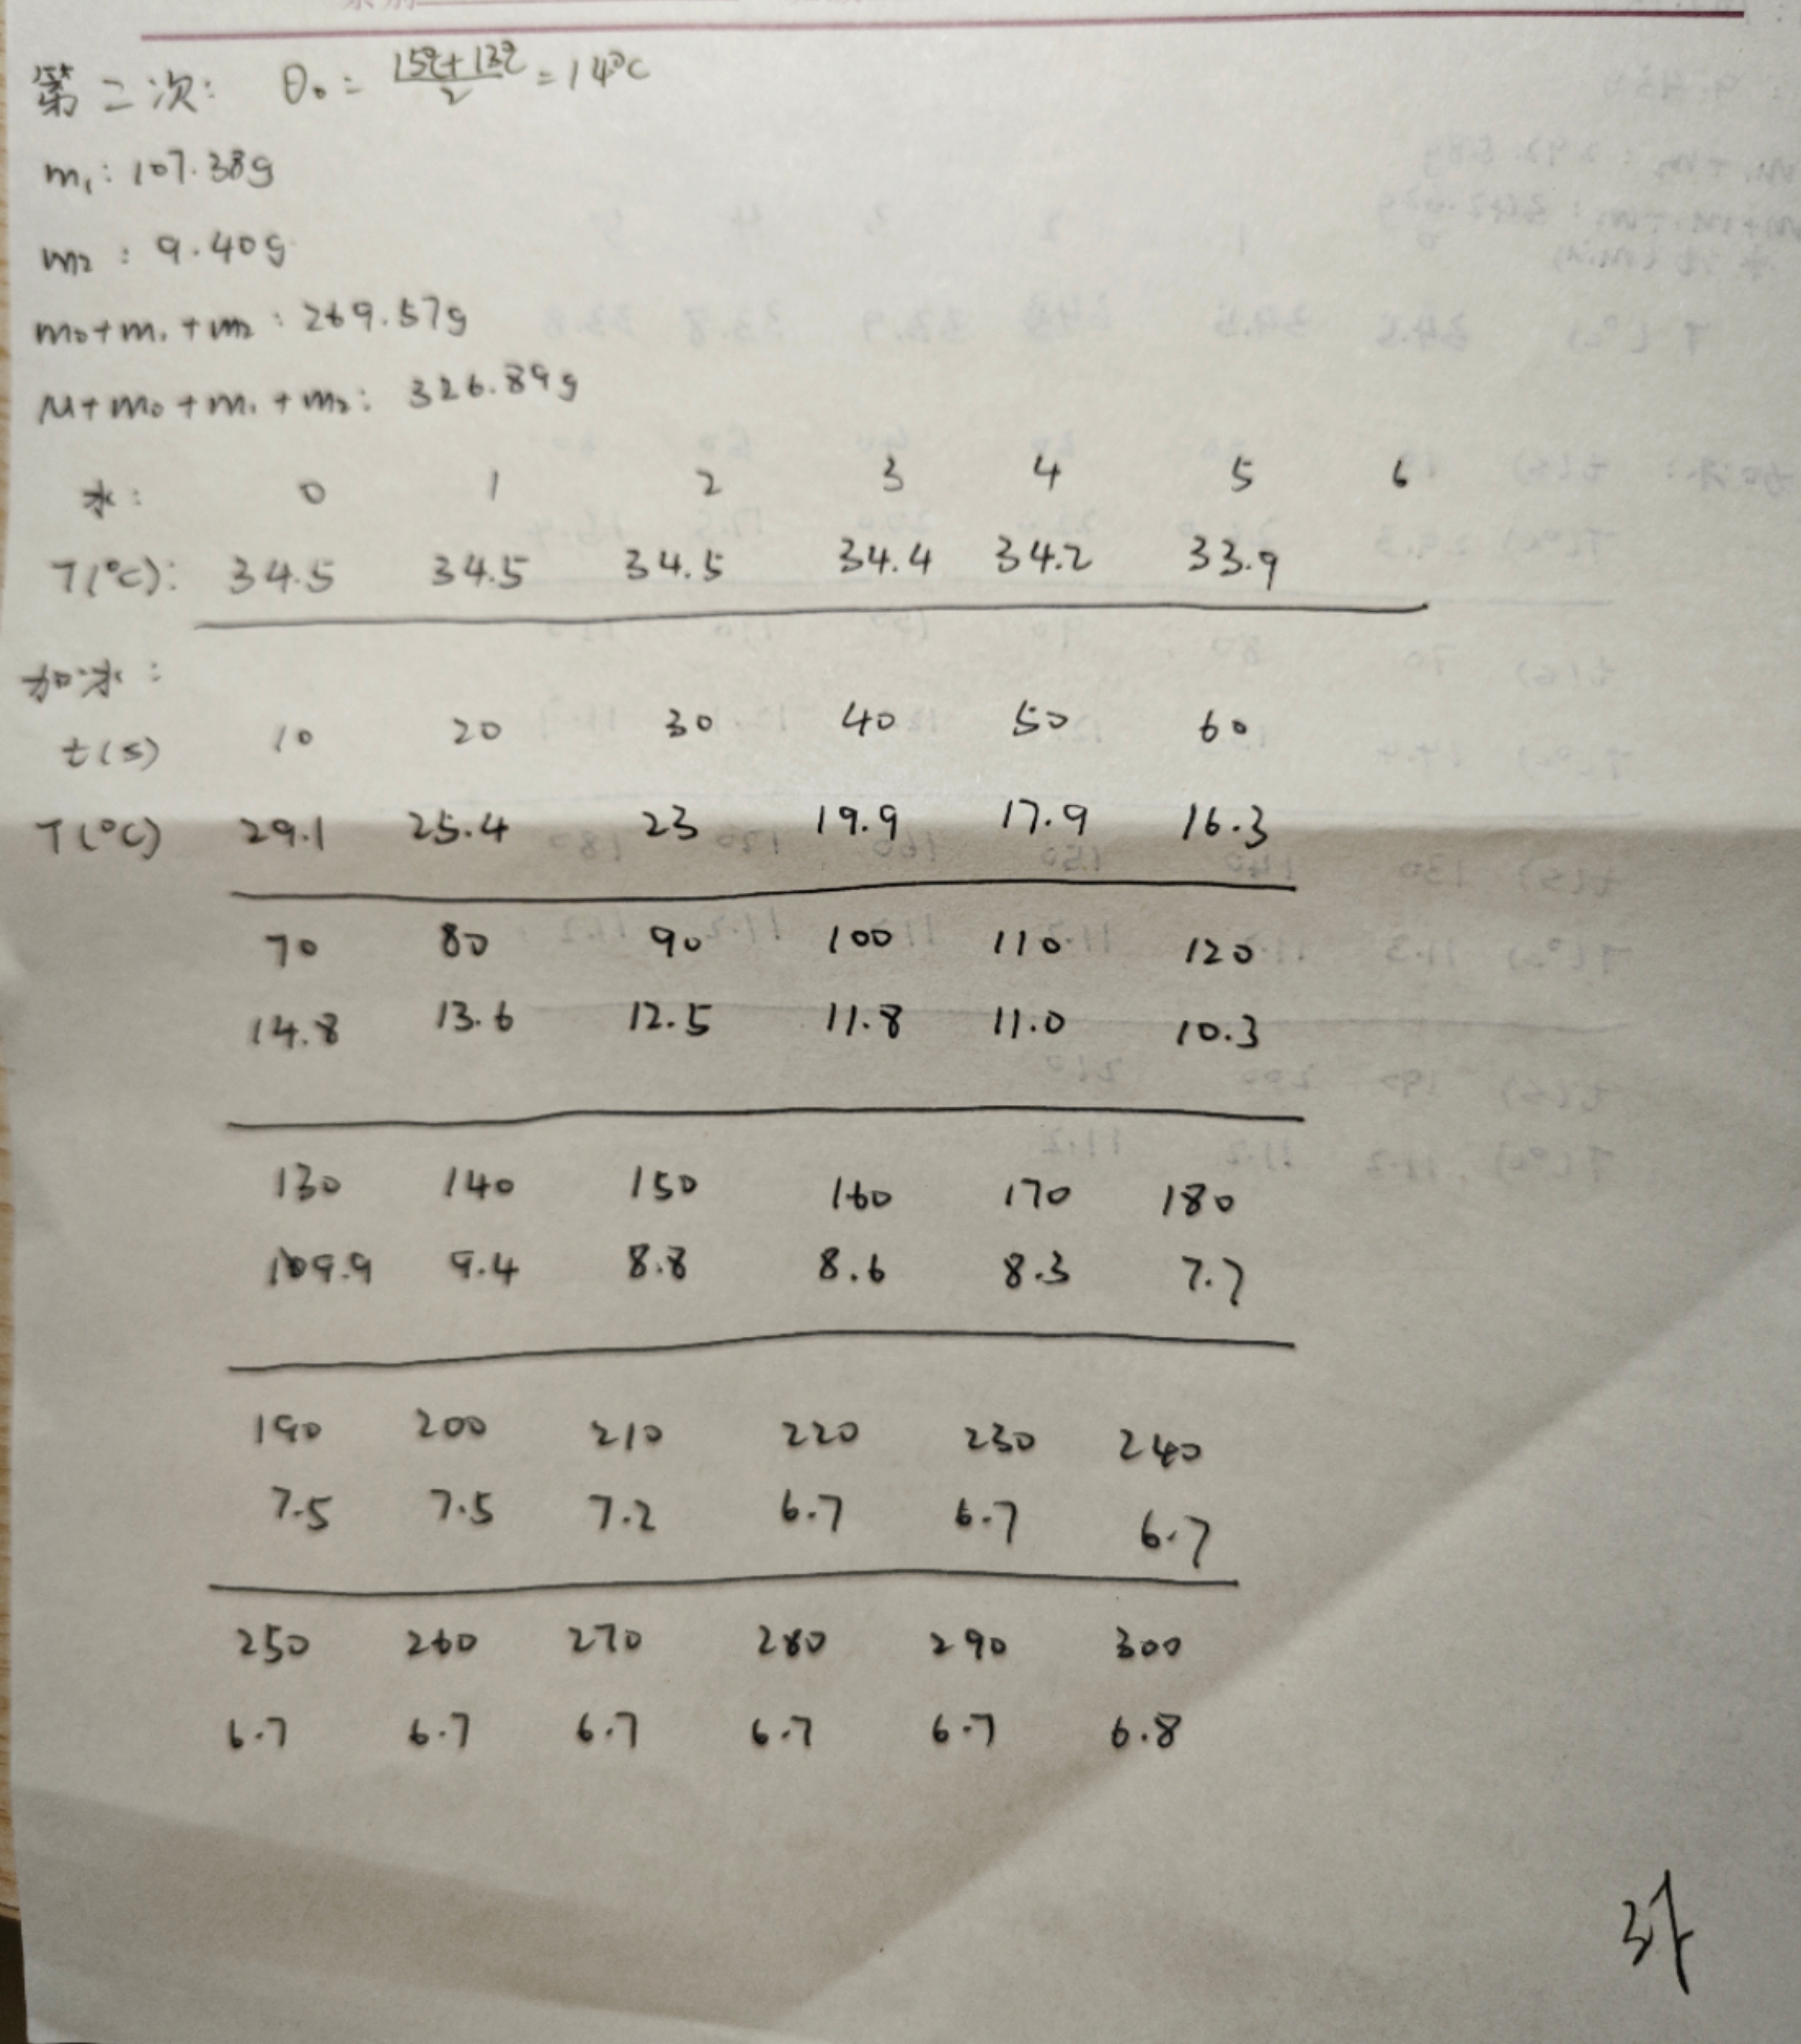 第二次: θ₀ = (15℃+13℃)/2 = 14℃
m₁: 107.38g
m₂: 9.40g
m₀+m₁+m₂: 269.57g
M+m₀+m₁+m₂: 326.89g
水: 0 1 2 3 4 5 6
T(℃): 34.5 34.5 34.5 34.4 34.2 33.9
加冰:
t(s) 10 20 30 40 50 60
T(℃) 29.1 25.4 23 19.9 17.9 16.3
70 80 90 100 110 120
14.8 13.6 12.5 11.8 11.0 10.3
130 140 150 160 170 180
9.9 9.4 8.8 8.6 8.3 7.7
190 200 210 220 230 240
7.5 7.5 7.2 6.7 6.7 6.7
250 260 270 280 290 300
6.7 6.7 6.7 6.7 6.7 6.8